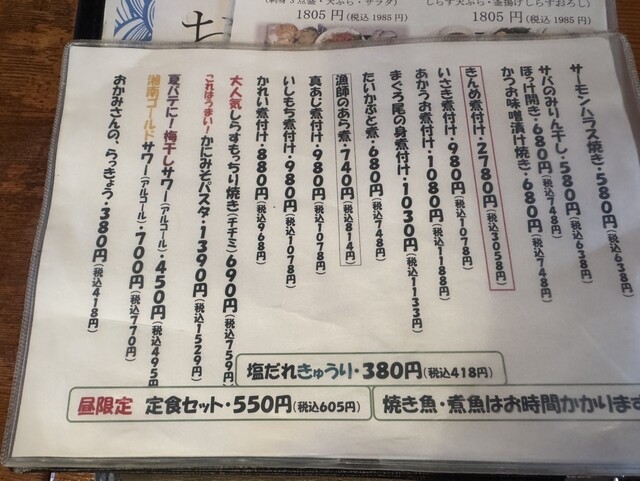 (刺身3点盛・天ぷら・サラダ)
1805円(税込1985円)
しらす天ぷら・釜揚げしらすおろし)
1805円(税込1985円)
サーモンハラス焼き・580円(税込638円)
サバのみりん干し・580円(税込638円)
ほっけ開き・680円(税込748円)
かつお味噌漬け焼き・680円(税込748円)
きんめ煮付け・2780円(税込3058円)
いさき煮付け・980円(税込1078円)
あかうお煮付け・1080円(税込1188円)
まぐろ尾の身煮付け・1030円(税込1133円)
たいかぶと煮・680円(税込748円)
漁師のあら煮・740円(税込814円)
真あじ煮付け・980円(税込1078円)
いしもち煮付け・980円(税込1078円)
かれい煮付け・880円(税込968円)
大人気しらすもっちり焼き(チヂミ)690円(税込759円)
これはうまい!かにみそパスタ・1390円(税込1529円)
夏バテに!梅干しサワー(アルコール)・450円(税込495円)
湘南ゴールドサワー(アルコール)・700円(税込770円)
おかみさんの、らっきょう・380円(税込418円)
塩だれきゅうり・380円(税込418円)
昼限定 定食セット・550円(税込605円)
焼き魚・煮魚はお時間かかります